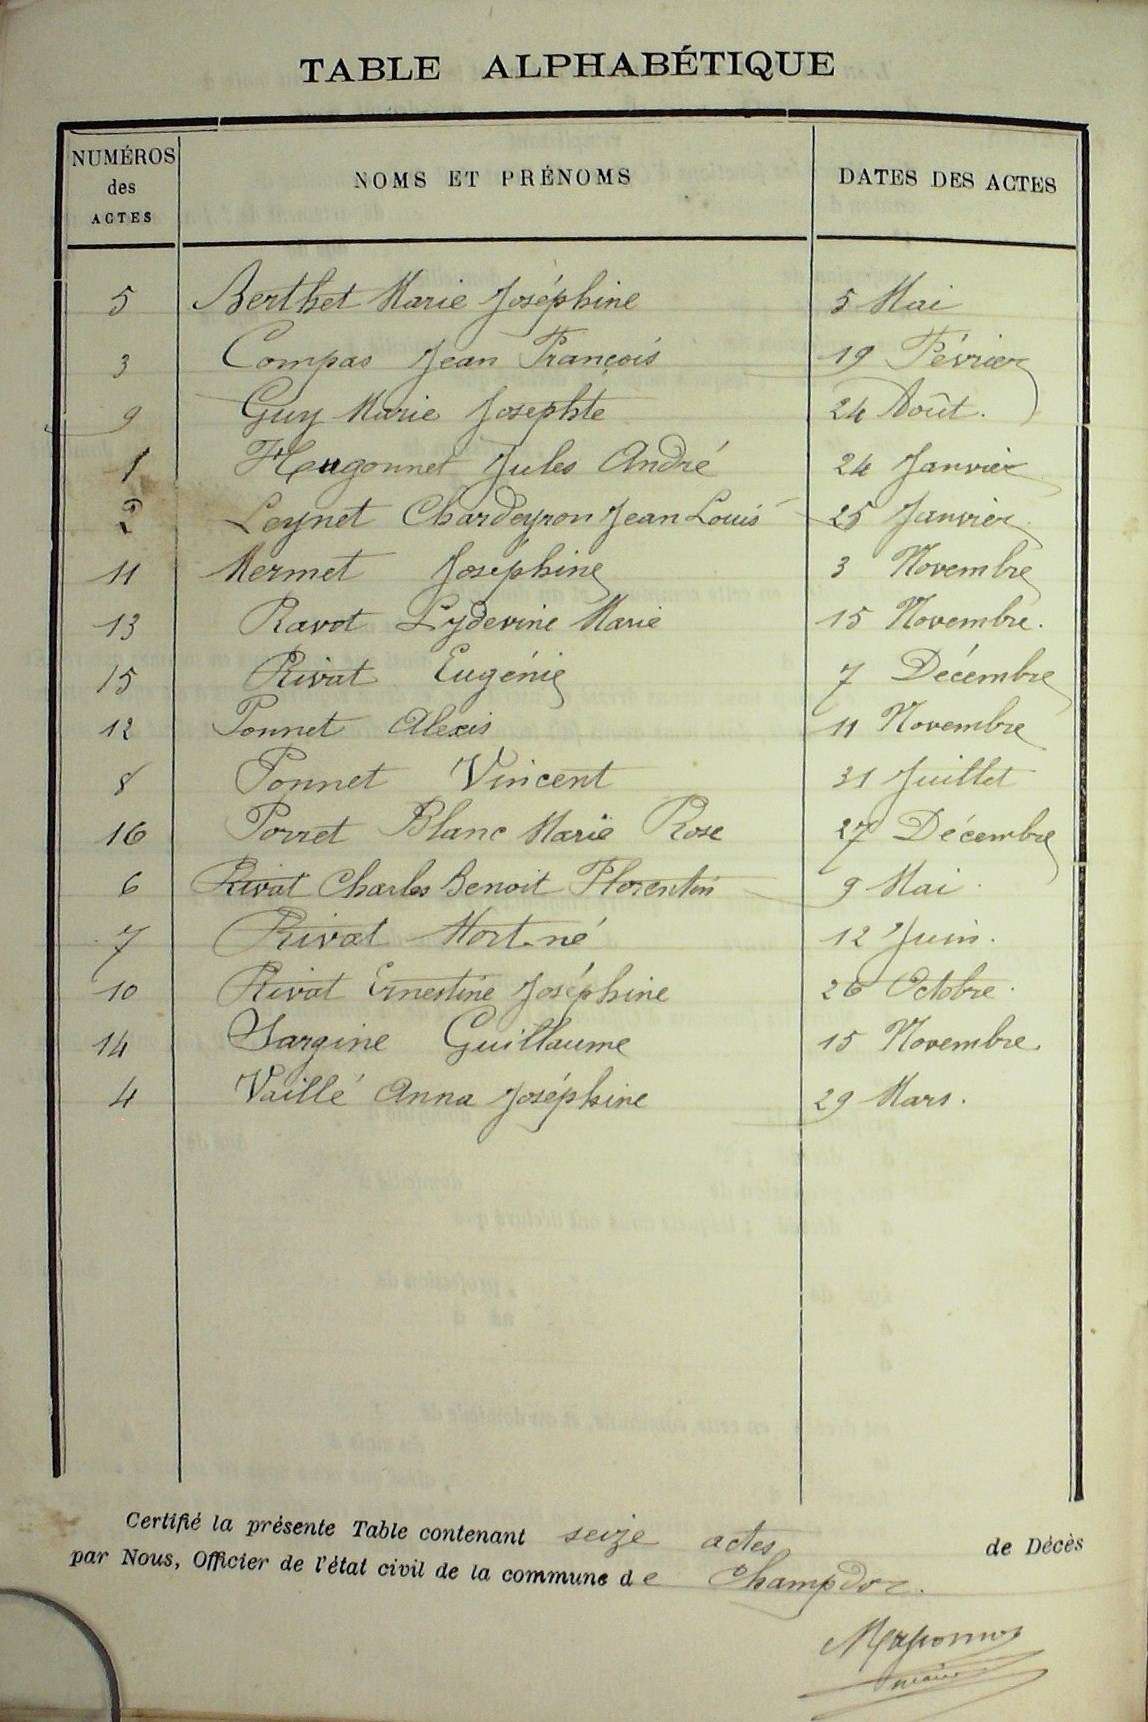 TABLE ALPHABÉTIQUE
NUMÉROS des ACTES NOMS ET PRÉNOMS DATES DES ACTES
5 Berthet Marie Joséphine 5 Mai
3 Compas Jean François 19 Février
9 Guy Marie Josephte 24 Août.
1 Hugonnet Jules André 24 Janvier
2 Leynet Chardeyron Jean Louis 25 Janvier
11 Mermet Joséphine 3 Novembre
13 Ravot Lydevine Marie 15 Novembre.
15 Rivat Eugénie 7 Décembre
12 Ponnet Alexis 11 Novembre
8 Ponnet Vincent 31 Juillet
16 Porret Blanc Marie Rose 27 Décembre
6 Rivat Charles Benoit Florentin 9 Mai
7 Rivat Mort-né 12 Juin.
10 Rivat Ernestine Joséphine 26 Octobre.
14 Sargine Guillaume 15 Novembre.
4 Vaillé Anna Joséphine 29 Mars.
Certifié la présente Table contenant seize actes de Décès
par Nous, Officier de l'état civil de la commune de Champdor.
maire